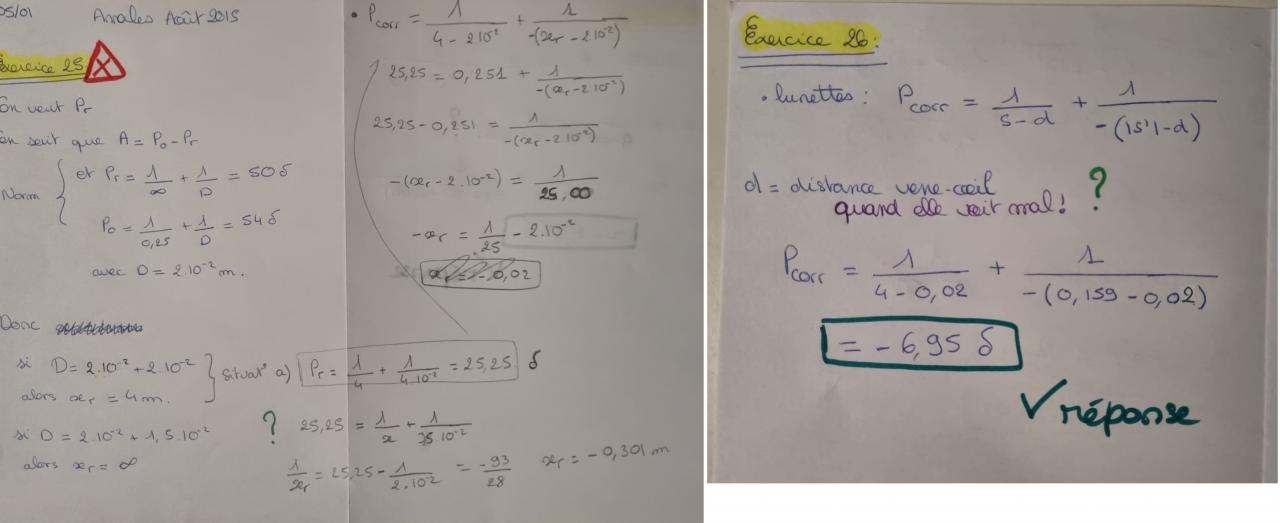 05/01 Anales Août 2015
Exercice 25
On veut Pr
On sait que A = P0 - Pr
Norm { et Pr = 1/∞ + 1/D = 50δ
P0 = 1/0,25 + 1/D = 54δ
avec D = 2.10⁻² m.
Donc
si D = 2.10⁻² + 2.10⁻²
alors xr = 4m.
} Situat° a) Pr = 1/4 + 1/4.10⁻² = 25,25 δ
si D = 2.10⁻² + 1,5.10⁻²
alors xr = ∞
? 25,25 = 1/x + 1/35.10⁻²
1/xr = 25,25 - 1/2.10⁻² = -93/28 xr = -0,301 m
• Pcorr = 1/4 - 2 10⁻² + 1/-(xr - 2 10⁻²)
25,25 = 0,251 + 1/-(xr - 2 10⁻²)
25,25 - 0,251 = 1/-(xr - 2 10⁻²)
-(xr - 2.10⁻²) = 1/25,00
-xr = 1/25 - 2.10⁻²
xr = -0,02
Exercice 26:
• lunettes : Pcorr = 1/s-d + 1/-(|s'|-d)
d = distance verre-œil
quand elle voit mal ! ?
Pcorr = 1/4 - 0,02 + 1/-(0,159 - 0,02)
= - 6,95 δ
√ réponse